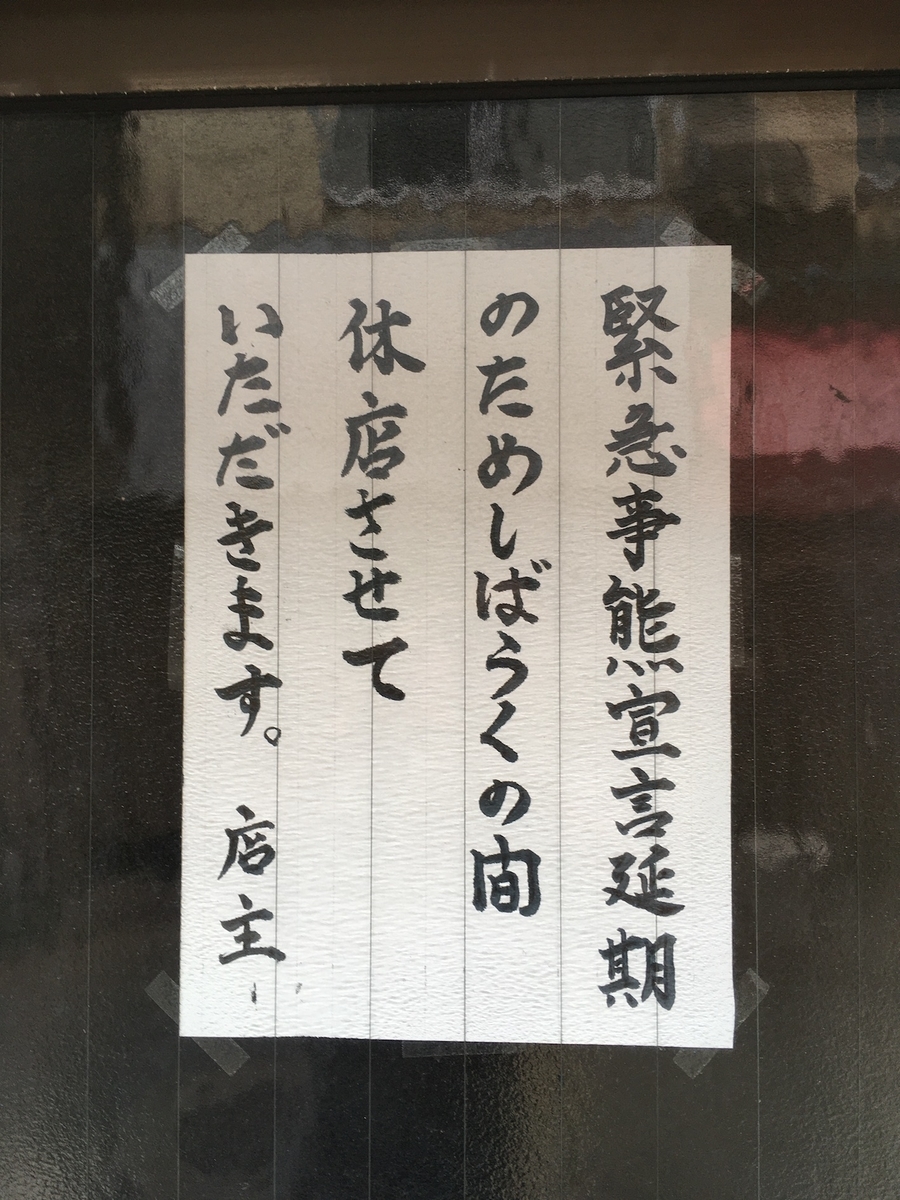 緊急事態宣言延期
のためしばらくの間
休店させて
いただきます。 店主